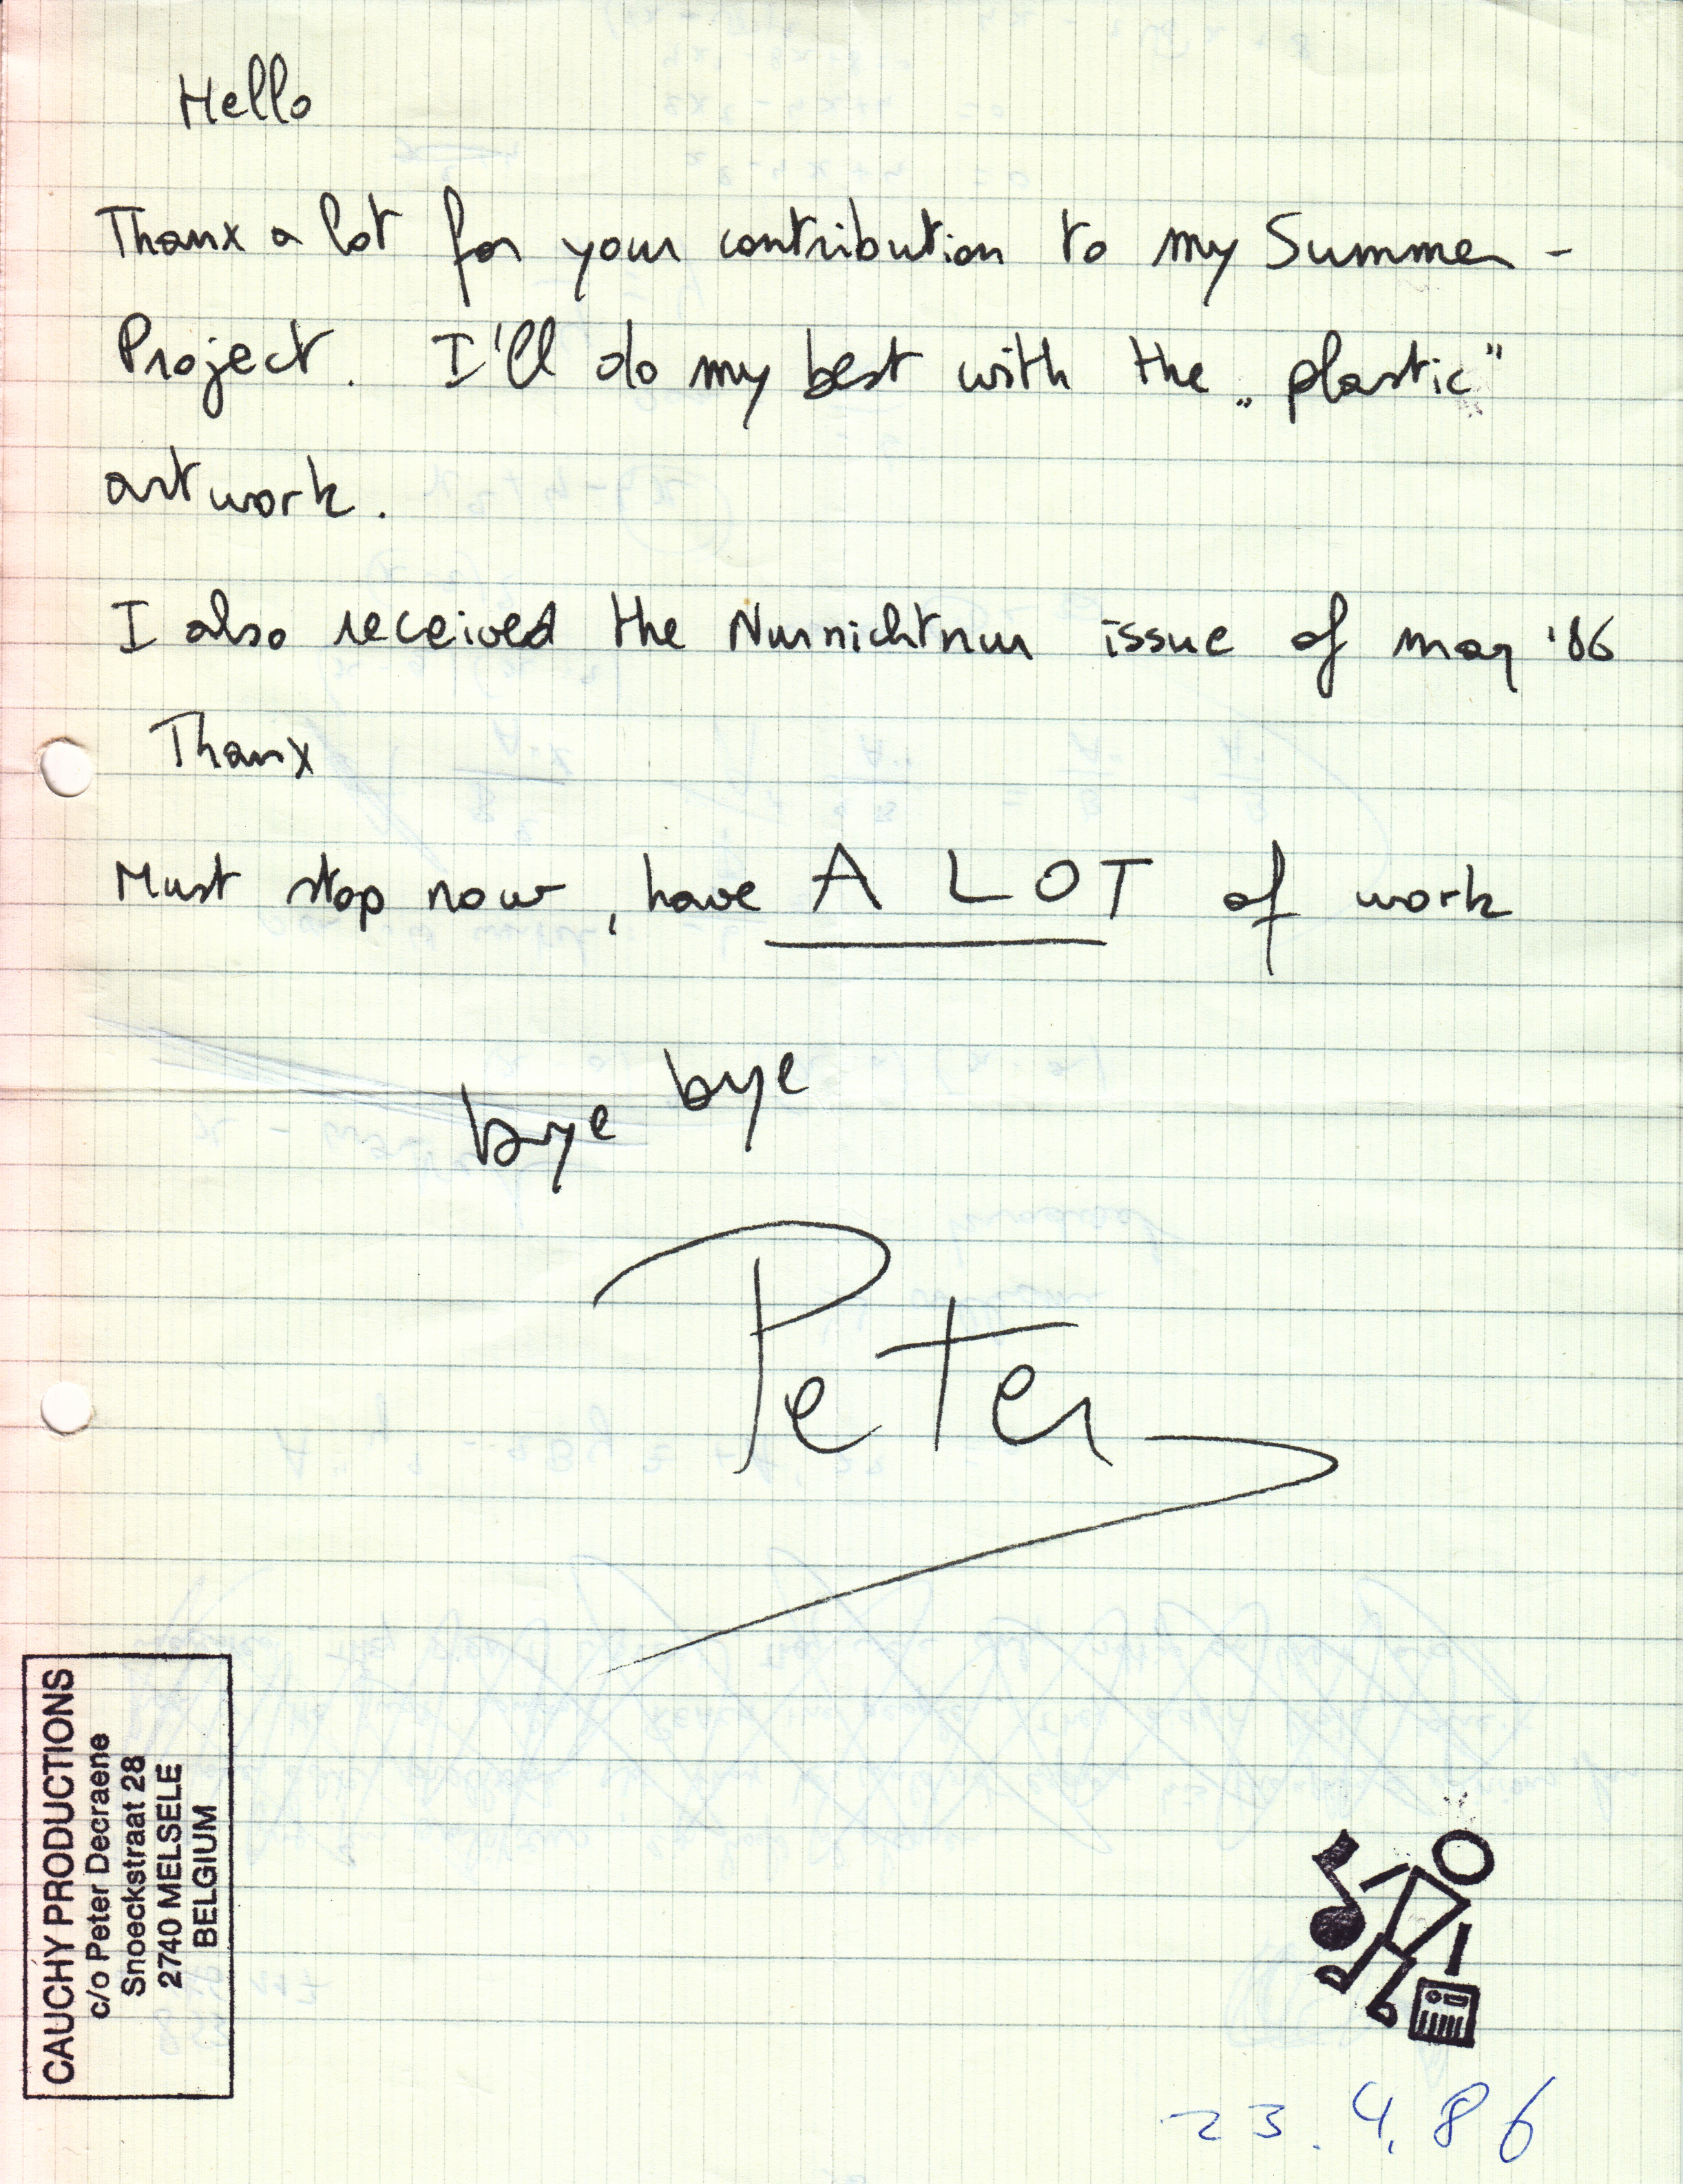 Hello
Thanx a lot for your contribution to my Summer-
Project. I'll do my best with the „plastic"
artwork.
I also received the Nurnichtnur issue of may '86
Thanx
Must stop now, have A LOT of work
bye bye
Peter
CAUCHY PRODUCTIONS
c/o Peter Decraene
Snoeckstraat 28
2740 MELSELE
BELGIUM
23.4.86